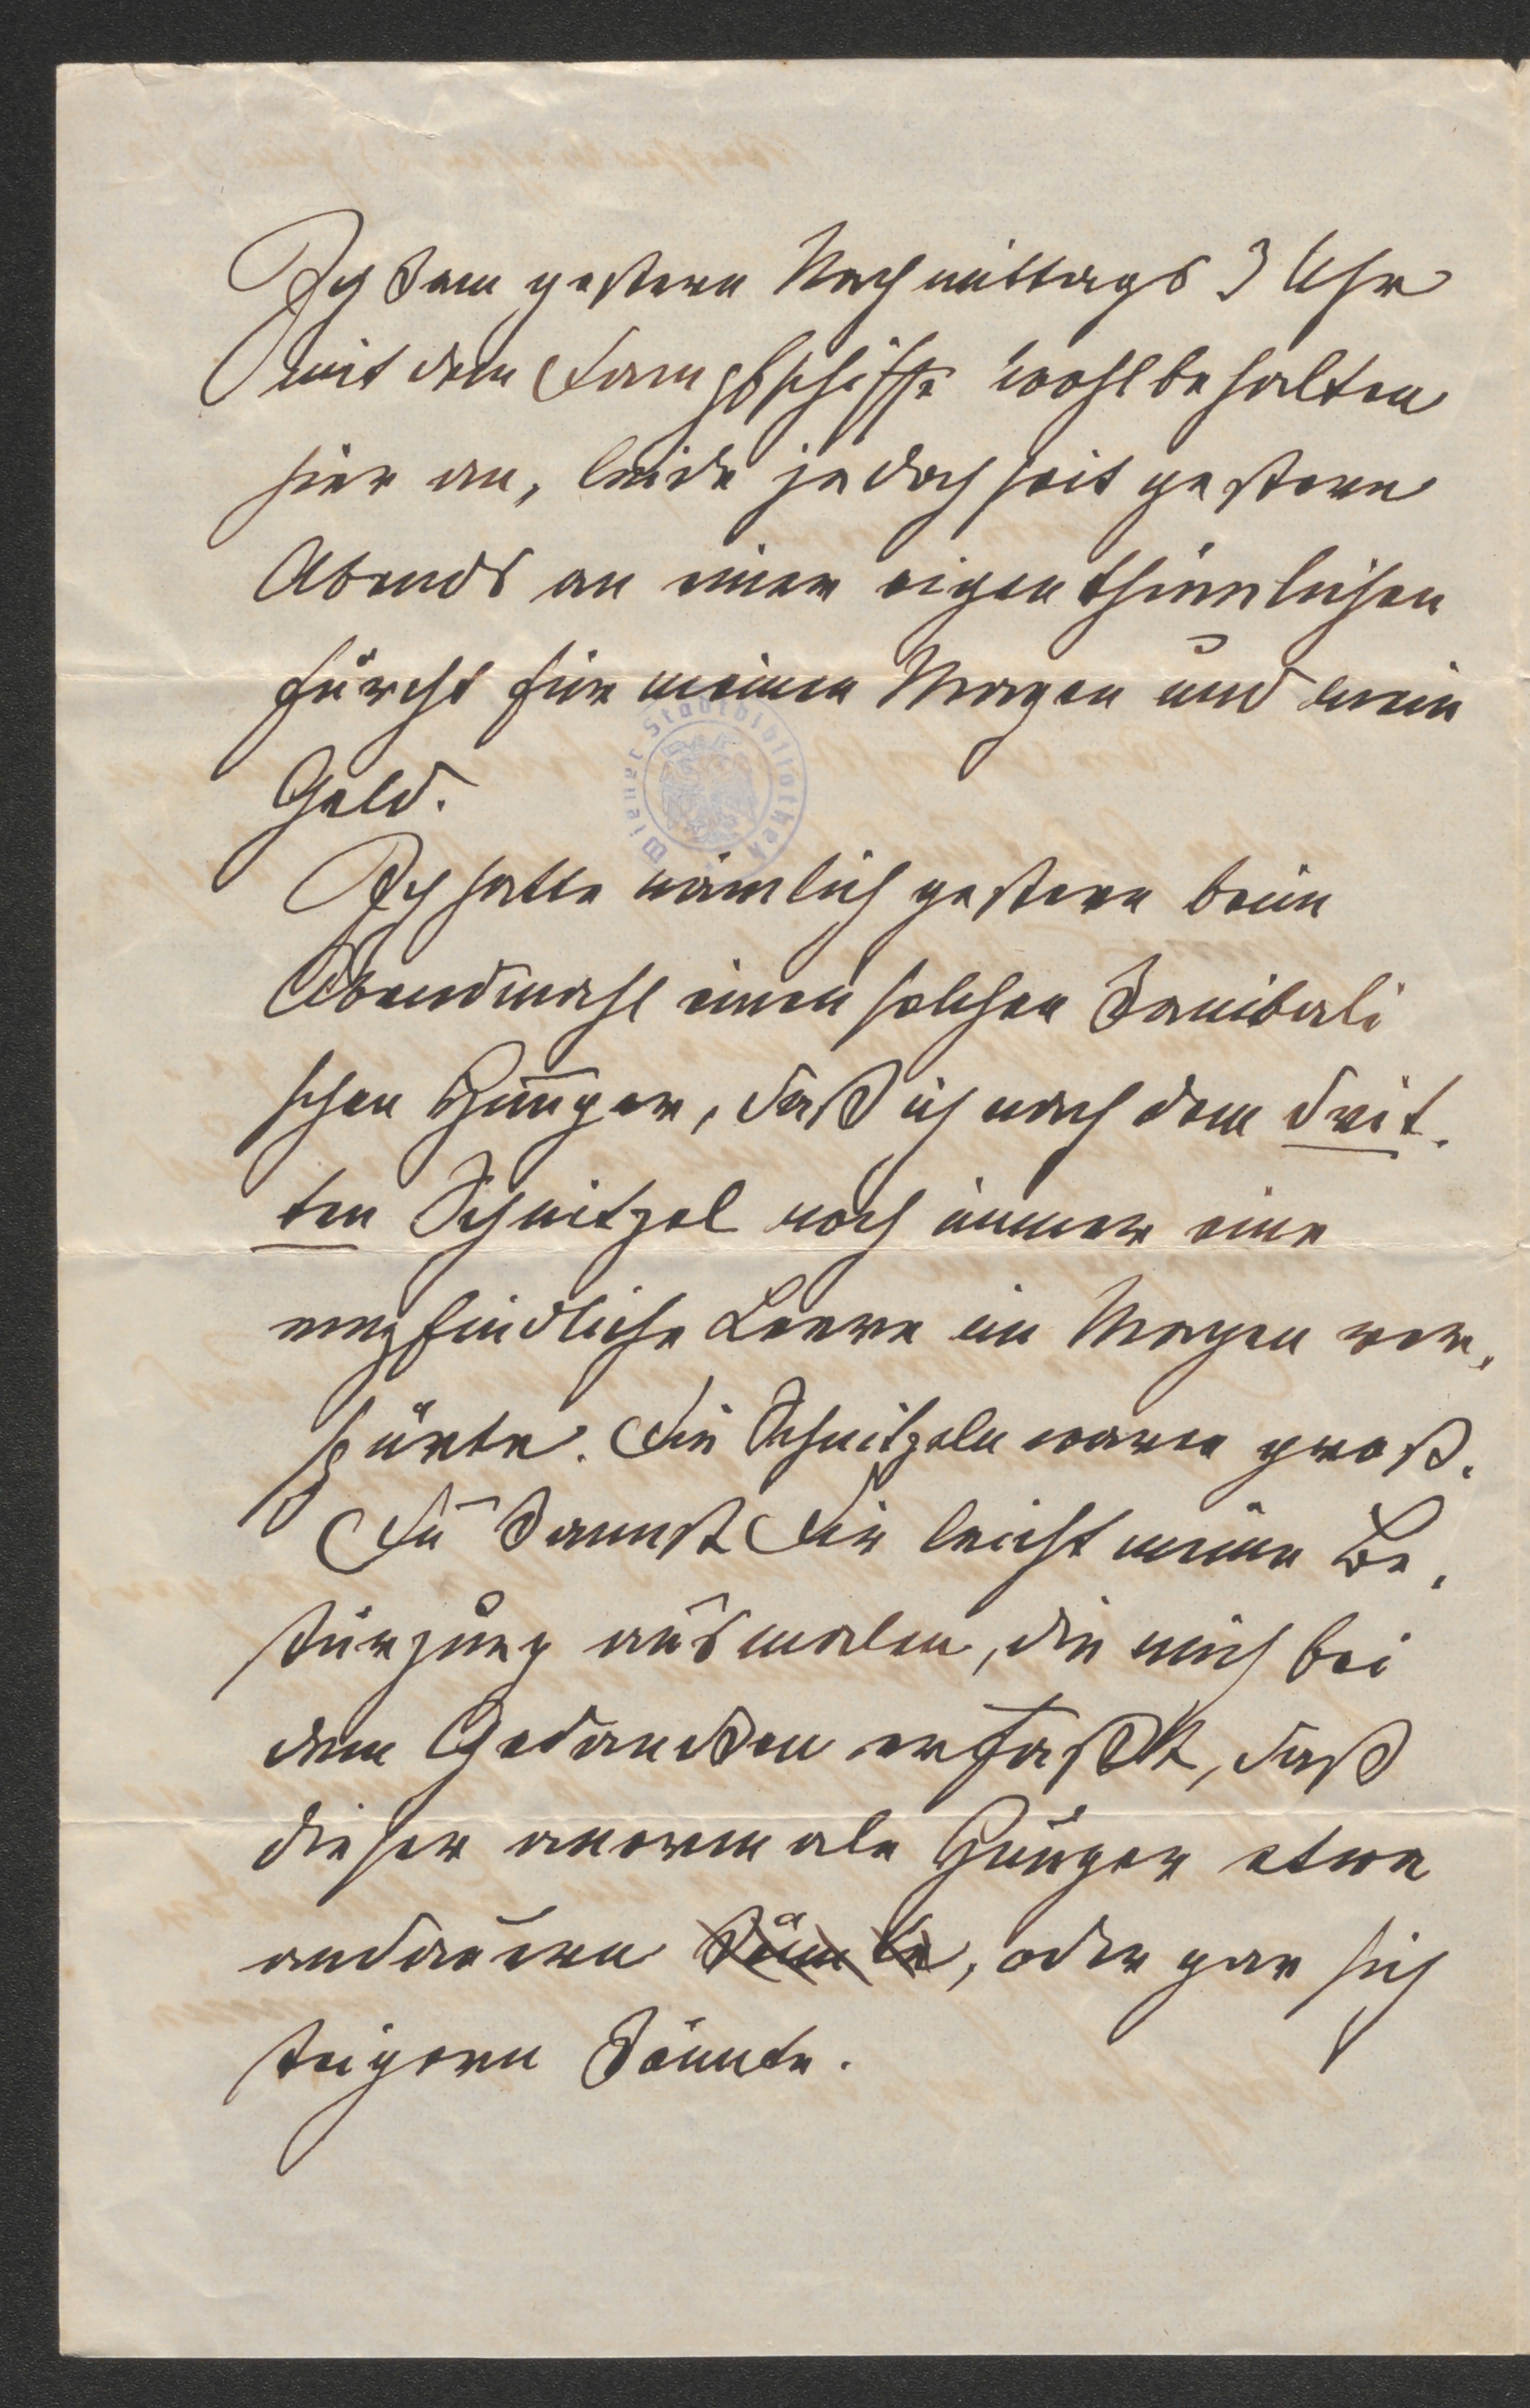 Ich kam gestern Nachmittags 3 Uhr
mit dem Dampfschiffe wohlbehalten
hier an, leide jedoch seit gestern
Abends an einer eigenthümlichen
Furcht für meinen Magen und mein
Geld.
Wiener Stadtbibliothek
Ich hatte nämlich gestern beim
Abendmahl einen solchen kanibali
schen Hunger, daß ich nach dem drit-
ten Schnitzel noch immer eine
empfindliche Leere im Magen ver-
spürte. Die Schnitzeln waren groß.
Du kannst Dir leicht meine Be-
stürzung ausmalen, die mich bei
dem Gedanken erfaßt, daß
dieser anormale Hunger etwa
andauern könnte, oder gar sich
steigern könnte.